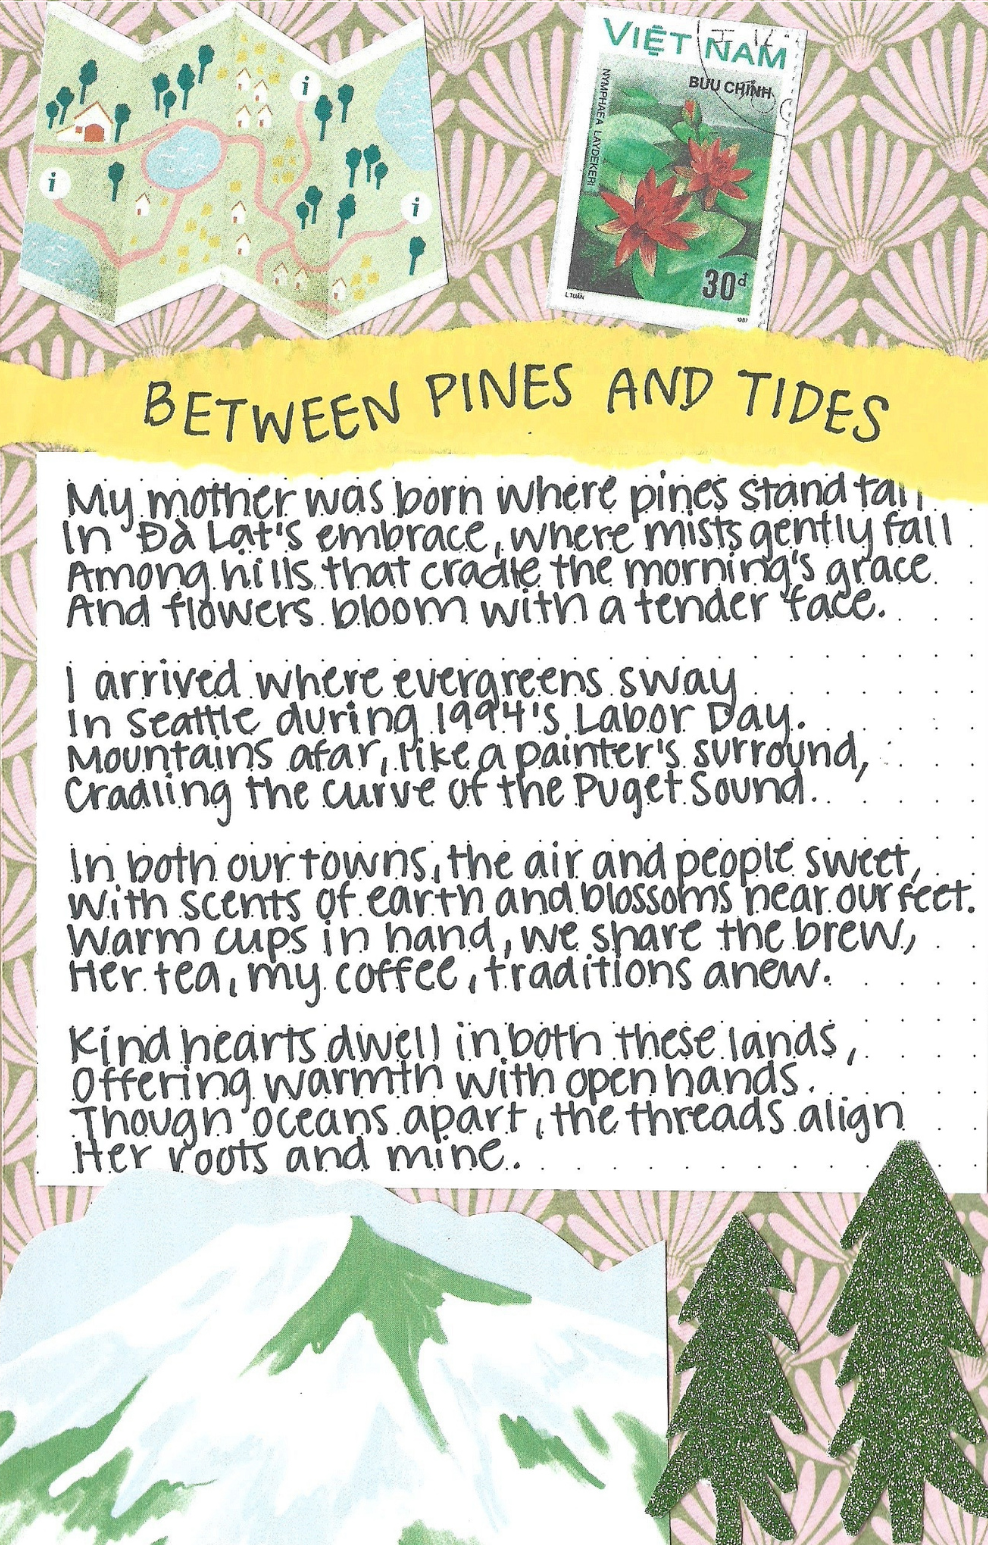 i
i
i
VIỆT NAM
BƯU CHÍNH
NYMPHAEA LAYDEKERI
30đ
L.TUẤN
1987
BETWEEN PINES AND TIDES
My mother was born where pines stand tall
In Đà Lạt's embrace, where mists gently fall
Among hills that cradle the morning's grace
And flowers bloom with a tender face.
I arrived where evergreens sway
In Seattle during 1994's Labor Day.
Mountains afar, like a painter's surround,
Cradling the curve of the Puget Sound.
In both our towns, the air and people sweet,
With scents of earth and blossoms near our feet.
Warm cups in hand, we share the brew,
Her tea, my coffee, traditions anew.
Kind hearts dwell in both these lands,
Offering warmth with open hands.
Though oceans apart, the threads align
Her roots and mine.